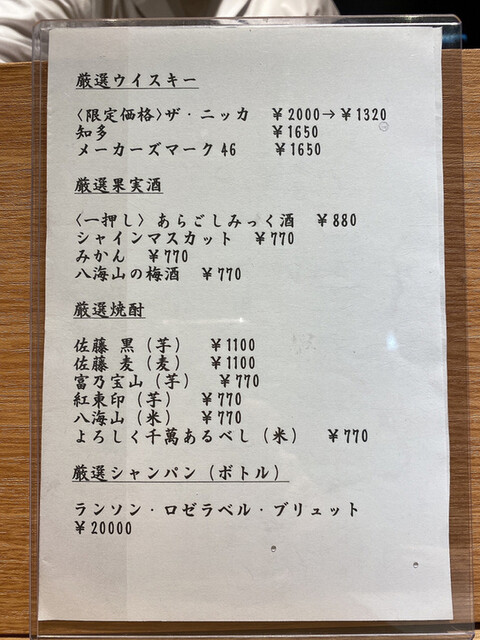 厳選ウイスキー
〈限定価格〉ザ・ニッカ ￥2000→￥1320
知多 ￥1650
メーカーズマーク46 ￥1650
厳選果実酒
〈一押し〉あらごしみっく酒 ￥880
シャインマスカット ￥770
みかん ￥770
八海山の梅酒 ￥770
厳選焼酎
佐藤 黒（芋） ￥1100
佐藤 麦（麦） ￥1100
富乃宝山（芋） ￥770
紅東印（芋） ￥770
八海山（米） ￥770
よろしく千萬あるべし（米） ￥770
厳選シャンパン（ボトル）
ランソン・ロゼラベル・ブリュット
￥20000